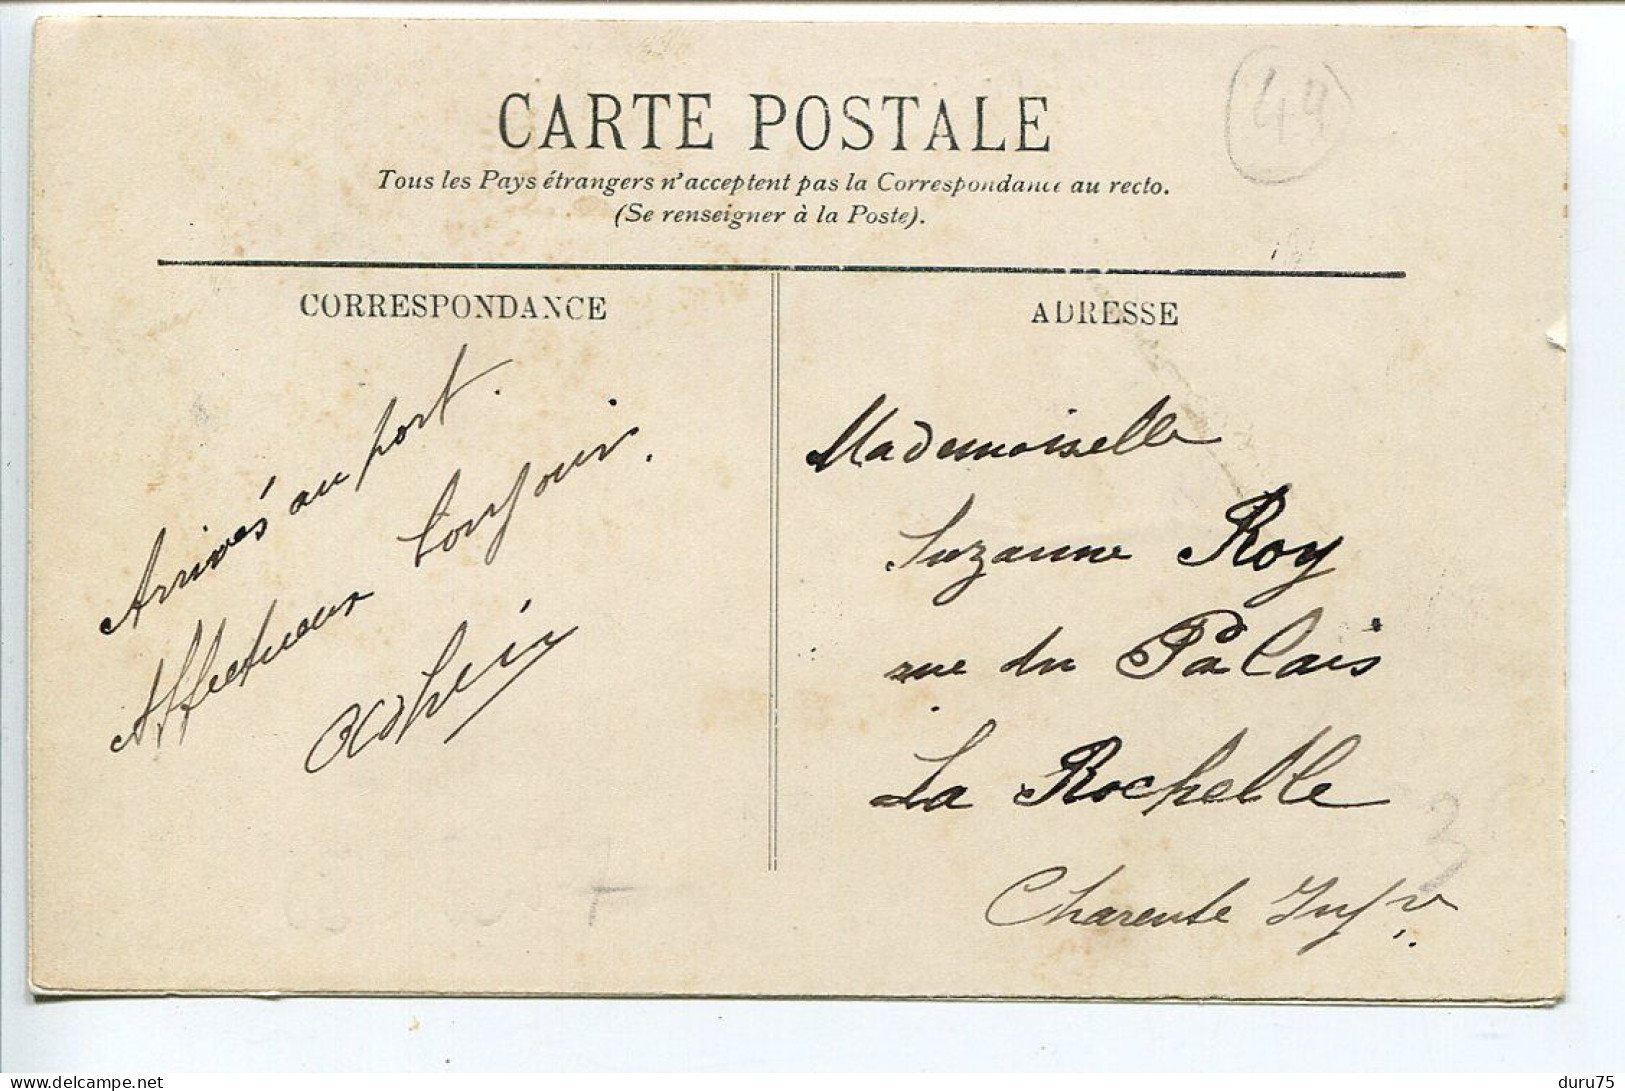 44
CARTE POSTALE
Tous les Pays étrangers n'acceptent pas la Correspondance au recto.
(Se renseigner à la Poste).
CORRESPONDANCE
Arrivés au port.
Affectueux bonjour.
ADRESSE
Mademoiselle
Suzanne Roy
rue du Palais
La Rochelle
Charente Infre
3
7
delcampe.net
duru75